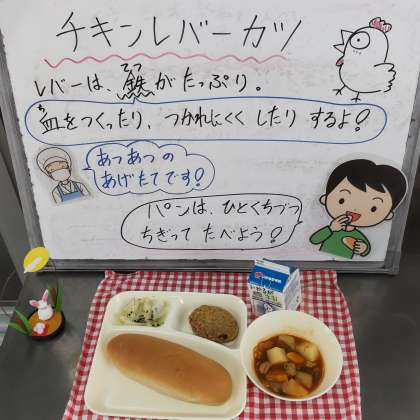 チキンレバーカツ
レバーは、鉄がたっぷり。
てつ
血をつくったり、つかれにくく したり するよ!
ち
あつあつ の
あげたてです!
パンは、ひとくちづつ
ちぎって たべよう!